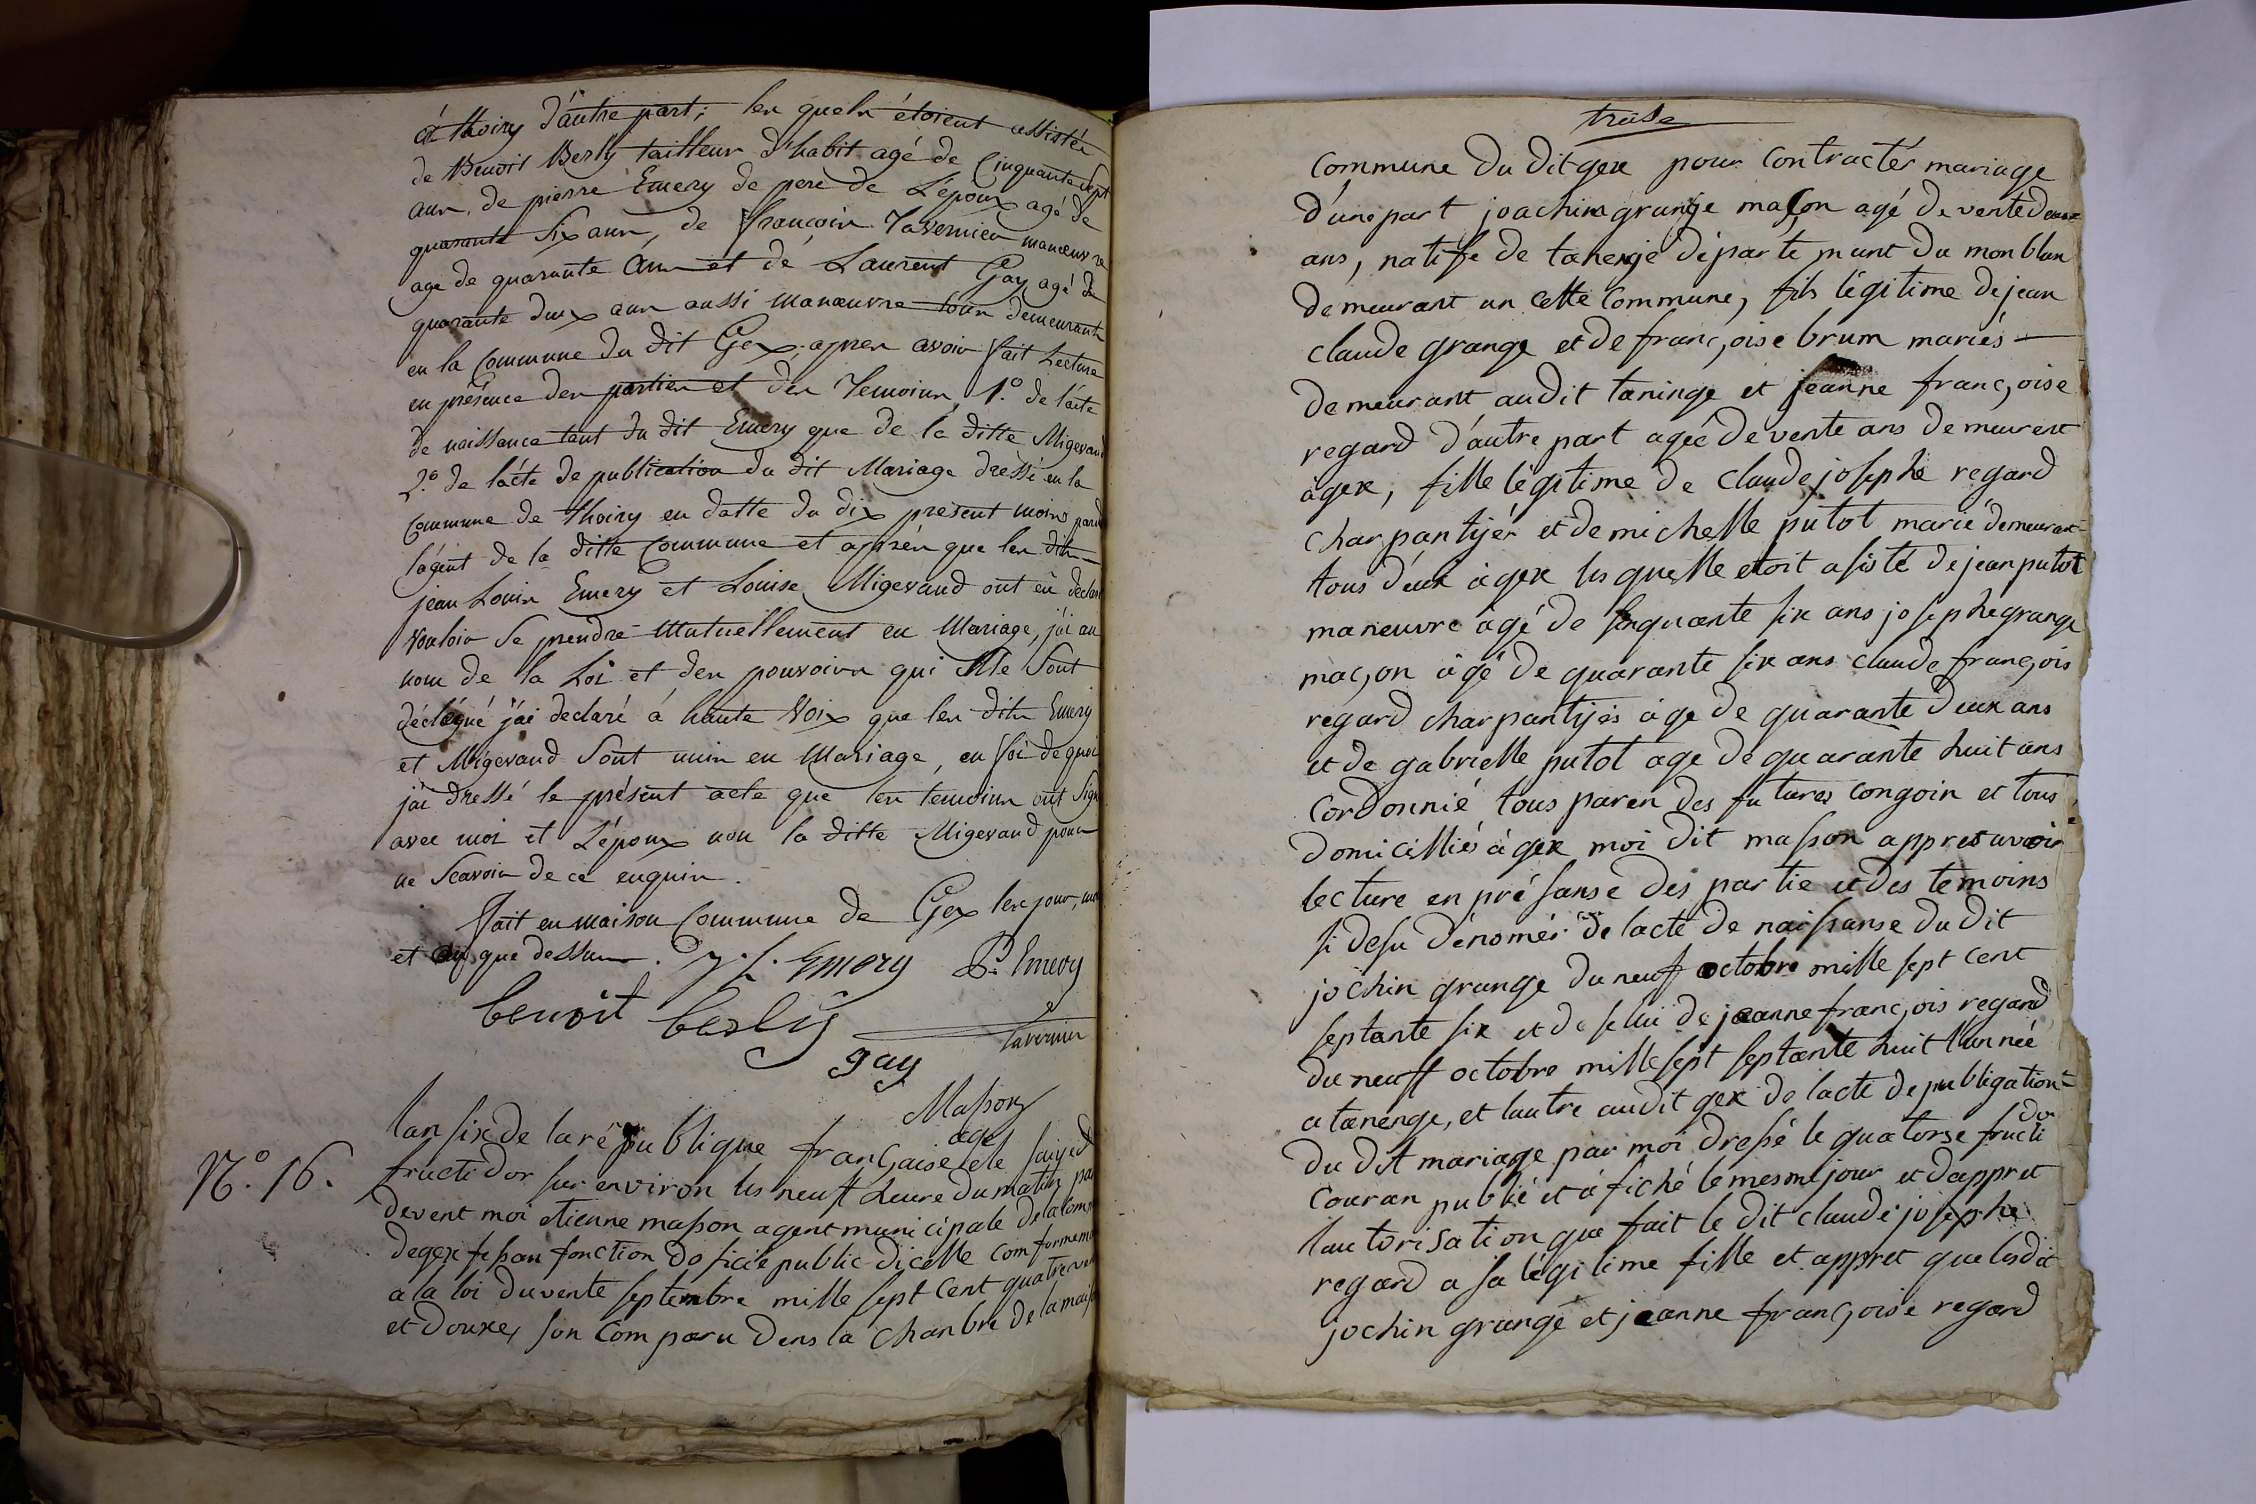 à thoiry d'autre part; les quels étoient assistés
de Benoit Berly tailleur d'habit agé de Cinquante sept
ans, de pierre Emery de pere de L'époux agé de
quarante Six ans, de françois Tavernier manoeuvre
agé de quarante ans et de Laurent Gay agé de
quarante deux ans aussi manoeuvre tous demeurants
en la Commune du dit Gex, apres avoir fait Lecture
en présence des parties et des Temoins, 1.° de l'acte
de naissance tant du dit Emery que de la ditte Migevand
2.° de l'acte de publication du dit Mariage dressé en la
Commune de Thoiry en datte du dix present mois par
l'agent de la ditte Commune et après que les dits
jean Louis Emery et Louise Migevand ont eû declaré
vouloir Se prendre Mutuellement en Mariage, j'ai au
nom de la Loi et des pouvoirs qui Me Sont
délégué j'ai declaré á haute Voix que les dits Emery
et Migevand Sont unis en Mariage, en foi de quoi
j'ai dressé le présent acte que les temoins ont Signé
avec moi et L'époux non la ditte Migevand pour
ne Scavoir de ce enquis.
fait en maison Commune de Gex les jour, mois
et an que dessus. J. L. Emery P.re Emery
benoit berly
gay tavernier
Masson
age
N.° 16.
lan six de la république française et le saiyed
fructidor sur environ les neuf heure du matin par
devent moi etienne masson agent municipale de la Commune
degex fesan fonction doficié public dicelle comformement
a la loi du vente septembre mille sept cent quatre vent
et douxe, son Comparu dens la chanbre de la maison
treise
commune du dit gex pour contractér mariage
d'une part joachim grange maçon agé de vente deux
ans, natife de tanenge département du monblan
demeurant en cette commune, fils légitime de jean
claude grange et de françoise brum mariés
demeurant audit taninge et jeanne françoise
regard d'autre part agée de vente ans demeurent
àgex, fille légitime de claude josephe regard
charpantiyér et de michelle putot marié demeurant
tous deux à gex les quelle etoit asisté de jean putot
maneuvre agé de sinquante six ans josephe grange
maçon àgé de quarante six ans claude françois
regard charpantiyés àge de quarante deux ans
et de gabrielle putot age de quarante huit ans
cordonnié, tous paren des futures congoin et tous
domicilliés à gex moi dit masson appret avoir
lecture en présanse des partie et des temoins
si desu dénomés de lacte de naissanse du dit
jochin grange du neuf octobre mille sept cent
septante six et de sellui de jeanne françois regard
du neuff octobre mille sept septante huit l'unnée
a tanenge, et lautre audit gex de lacte de publigation
du dit mariage par moi dressé le quatorse fructi
dor
couran publié et áfiché le mesme jour et dappret
lautorisation qua fait le dit claude josephe
regard a sa légitime fille et appret que lesdit
jochin grange et jeanne françoise regard